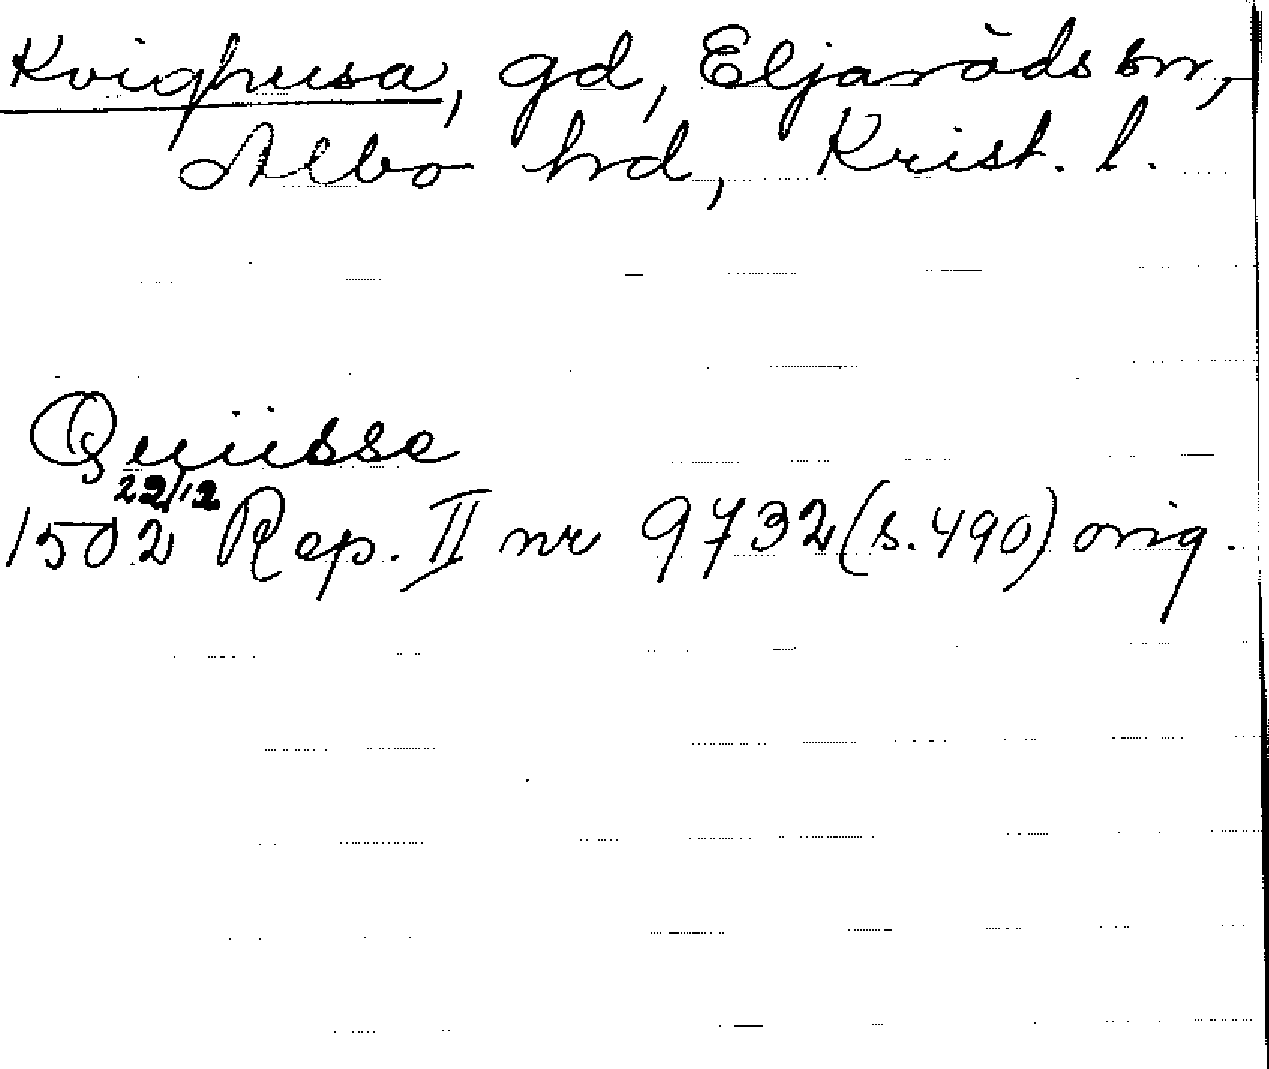 Kvighusa, gd, Eljaröds sn,
Albo hd, Krist. l.
Quiisse
22/12
1502 Rep. II nr 9732 (s. 490) orig.